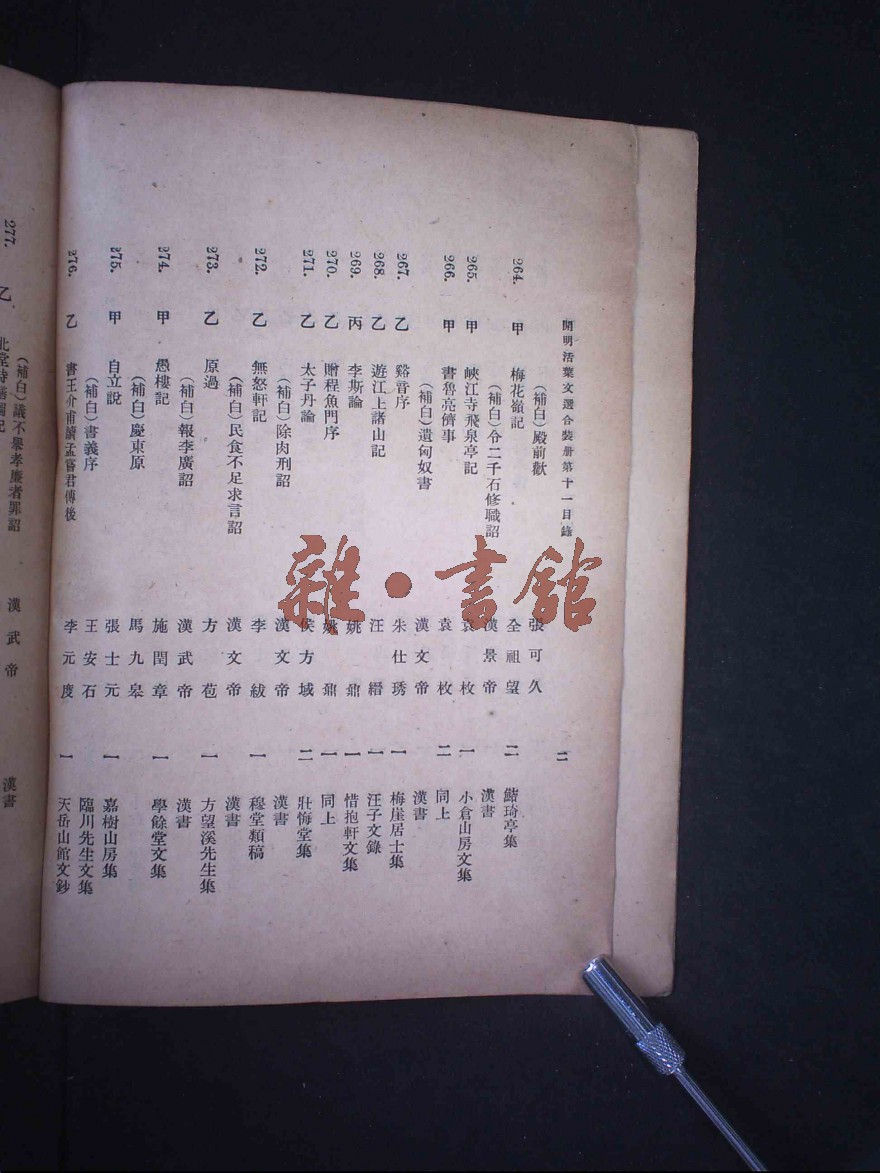 開明活葉文選合裝册第十一目錄 二
(補白)殿前歡 張可久
264. 甲 梅花嶺記 全祖望 二 鮚埼亭集
(補白)令二千石修職詔 漢景帝 漢書
265. 甲 峽江寺飛泉亭記 袁枚 一 小倉山房文集
266. 甲 書魯亮儕事 袁枚 二 同上
(補白)遺匈奴書 漢文帝 漢書
267. 乙 谿音序 朱仕琇 一 梅崖居士集
268. 乙 遊江上諸山記 汪縉 一 汪子文錄
269. 丙 李斯論 姚鼐 一 惜抱軒文集
270. 乙 贈程魚門序 姚鼐 一 同上
271. 乙 太子丹論 侯方域 二 壯悔堂集
(補白)除肉刑詔 漢文帝 漢書
272. 乙 無怒軒記 李紱 一 穆堂類稿
(補白)民食不足求言詔 漢文帝 漢書
273. 乙 原過 方苞 一 方望溪先生集
(補白)報李廣詔 漢武帝 漢書
274. 甲 愚樓記 施閏章 一 學餘堂文集
(補白)慶東原 馬九皋
275. 甲 自立說 張士元 一 嘉樹山房集
(補白)書義序 王安石 臨川先生文集
276. 乙 書王介甫讀孟嘗君傳後 李元度 一 天岳山館文鈔
(補白)議不舉孝廉者罪詔 漢武帝 漢書
277. 乙
雜·書館